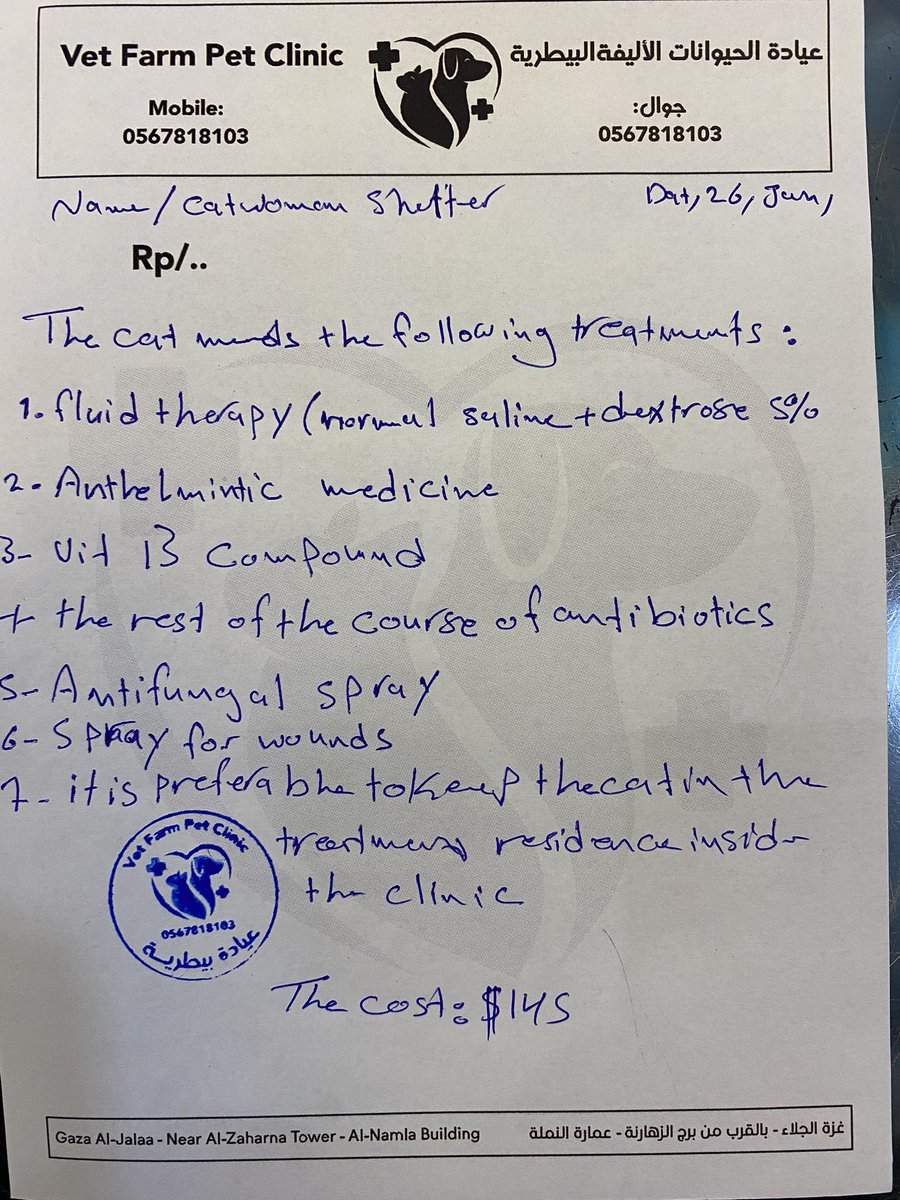 Vet Farm Pet Clinic
Mobile:
0567818103
عيادة الحيوانات الأليفة البيطرية
جوال:
0567818103
Name/ Catwoman Shelter
Dat, 26, Jun,
Rp/..
The cat needs the following treatments :
1. fluid therapy (normal saline + dextrose 5%
2- Anthelmintic medicine
3- Vit B Compound
+ the rest of the course of antibiotics
5- Antifungal spray
6- Spray for wounds
7- it is preferable to keep the cat in the
treatment residence inside
the clinic
Vet Farm Pet Clinic
0567818103
عيادة بيطرية
The cost: $145
Gaza Al-Jalaa - Near Al-Zaharna Tower - Al-Namla Building
غزة الجلاء - بالقرب من برج الزهارنة - عمارة النملة